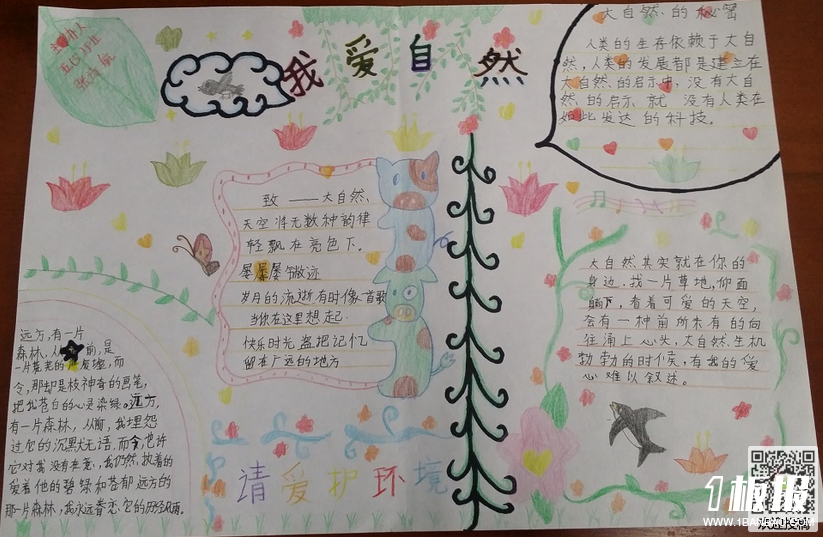 主办人
我爱自然
大自然的秘密
人类的生存依赖于大自
然,人类的发展都是建立在
大自然的启示中,没有大自
然的启示就没有人类在
如此发达的科技。
致——大自然、
天空将无数种韵律
轻飘在亮色下。
屡屡
岁月的流逝有时像首歌
当你在这里想起
快乐时光盗把记忆
留在广远的地方
大自然其实就在你的
身边.找一片草地,仰面
躺下,看着可爱的天空,
会有一种前所未有的向
往涌上心头,大自然生机
勃勃的时候,有我的爱
心难以叙述。
远方,有一片
森林,从前,是
一片荒芜的废墟,而
今,那却是枝神奇的画笔,
把我苍白的心灵染绿。远方,
有一片森林,从前,我埋怨
过它的沉默无语,而今,也许
它对我没有在意,我仍然,执着的
爱着他的碧绿和苍郁远方的
那一片森林,我永远眷恋.它的
请爱护环境
1板报
WWW.1BANBAO.COM
欢迎投稿